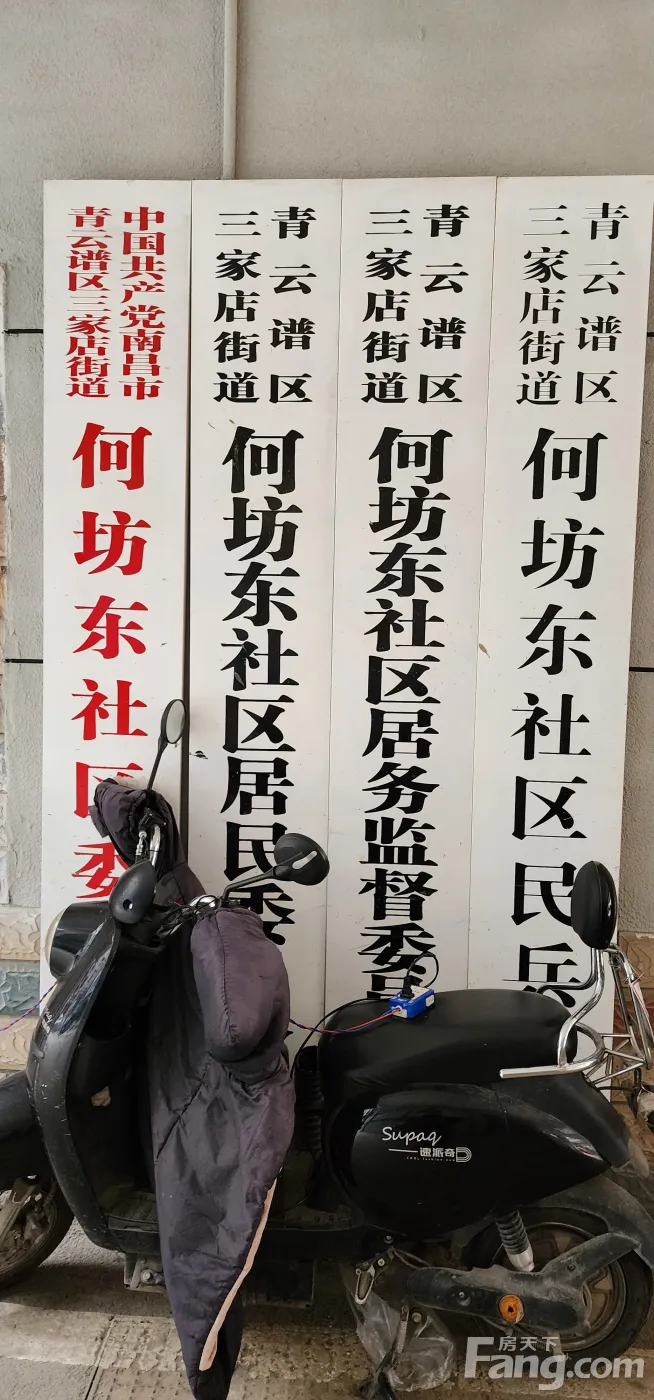 中国共产党南昌市
青云谱区三家店街道
何坊东社区委
青云谱区
三家店街道
何坊东社区居民委
青云谱区
三家店街道
何坊东社区居务监督委员
青云谱区
三家店街道
何坊东社区民兵
Supaq
速派奇
房天下
Fang.com